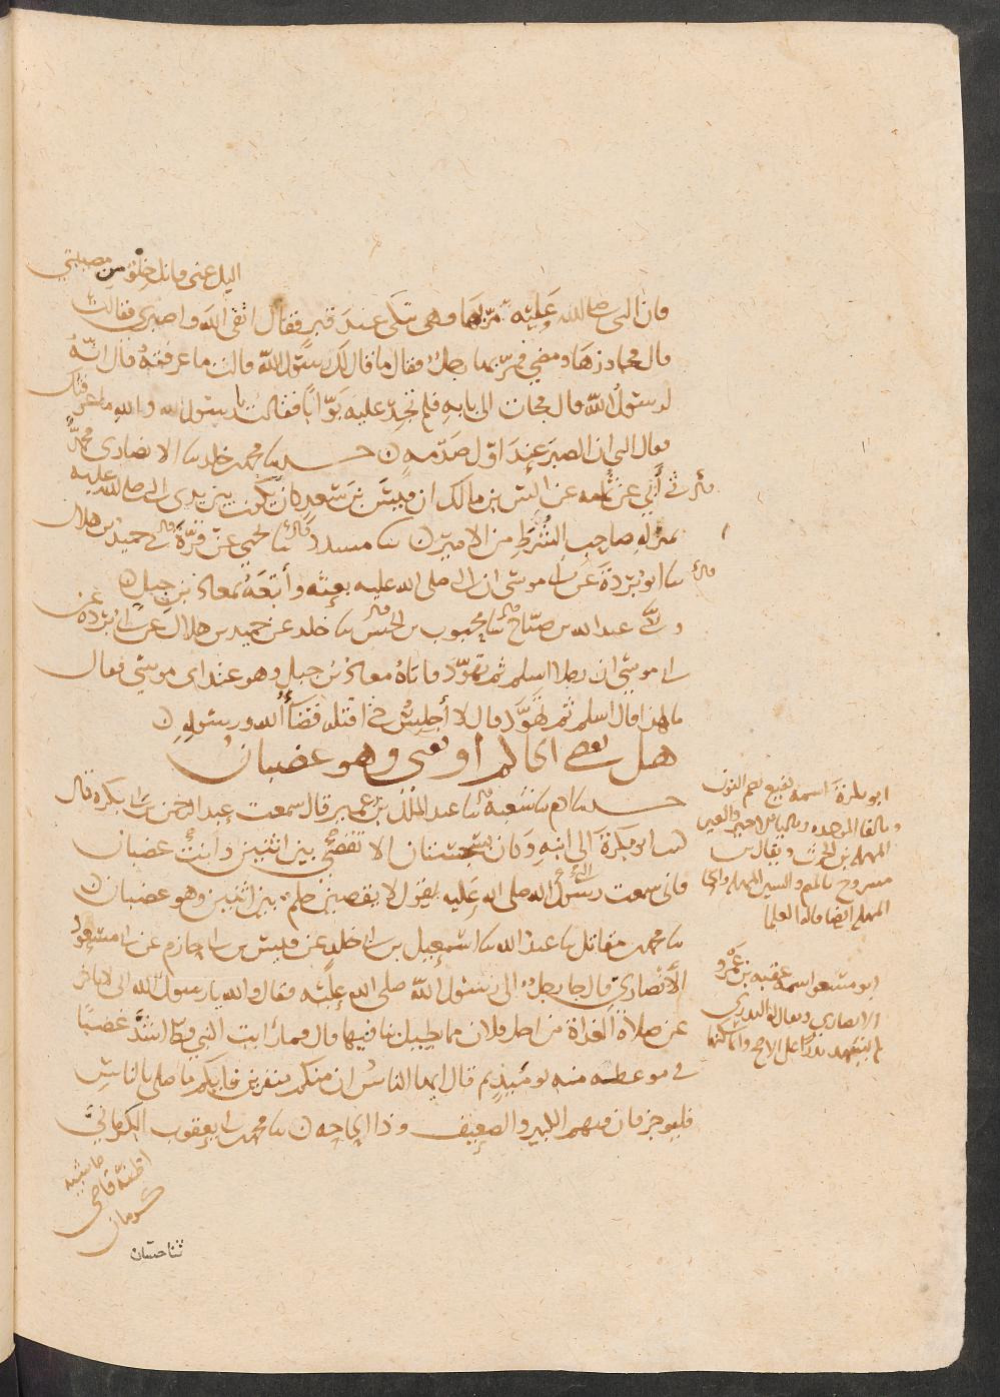 اليك عني فانك خلو من مصيبتي
فان النبي صلى الله عليه مر بها وهي تبكي عند قبر فقال اتقي الله واصبري فقالت
قال فجاوزها ومضى فمر بها رجل فقال ما قال لك رسول الله قالت ما عرفته قال انه
لرسول الله قال فجات الى بابه فلم تجد عليه بوابا فقالت يا رسول الله والله ما عرفتك
فقال النبي ان الصبر عند اول صدمه حدثنا محمد بن خلد نا الانصاري محمد
قال ثني أبي عن ثمامه عن انس بن مالك ان قيس بن سعد كان يكون بين يدي النبي صلى الله عليه
بمنزله صاحب الشرط من الامير نا مسدد قال نا يحيى عن قرة قال ني حميد بن هلال
قال نا ابو بردة عن ابي موسى ان النبي صلى الله عليه بعثه وأتبعه بمعاذ بن جبل
وني عبد الله بن صباح قال نا محبوب بن الحسن قال نا خلد عن حميد بن هلال عن ابي بردة عن
ابي موسى ان رجلا اسلم ثم تهود فاتاه معاذ بن جبل وهو عند ابي موسى فقال
ما لهذا قال اسلم ثم تهود قال لا أجلس حتى اقتله قضاء الله ورسوله
هل يقضي الحاكم او يفتي وهو غضبان
حدثنا ادم نا شعبة قال نا عبد الملك بن عمير قال سمعت عبد الرحمن بن ابي بكرة قال
كتب ابو بكرة الى ابنه وكان بسجستان الا تقضي بين اثنين وأنت غضبان
فاني سمعت رسول الله صلى الله عليه يقول لا يقضين حكم بين اثنين وهو غضبان
نا محمد بن مقاتل نا عبد الله نا اسمعيل بن ابي خلد عن قيس بن ابي حازم عن ابي مسعود
الأنصاري قال جا رجل الى رسول الله صلى الله عليه فقال والله يا رسول الله اني لاتاخر
عن صلاة الغداة من اجل فلان مما يطيل بنا فيها قال فما رايت النبي قط اشد غضبا
في موعظه منه يومئذ ثم قال ايها الناس ان منكم منفرين فايكم ما صلى بالناس
فليوجز فان فيهم الكبير والضعيف وذا الحاجه نا محمد بن ابي يعقوب الكرماني
ابو بكرة اسمه نفيع بضم النون
وبالفا الموحده وباليا من اخير والعين
المهمله بن الحرث ويقال بن
مسروح بالميم والسين المهمله والحا
المهمله ايضا قاله العلما
ابو مسعود اسمه عقبه بن عمرو
الانصاري ويقال له البدري
لم يشهد بدرا على الاصح وانما سكنها
حاشيه
اظنه قاضي
كرمان
ثنا حسان